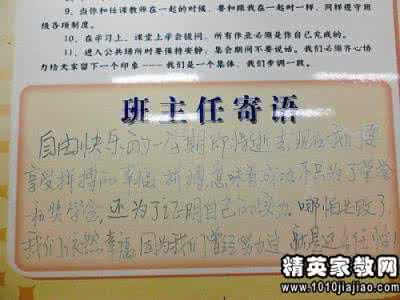 9、当你和任课教师在一起的时候，要和跟我在一起时一样，同样遵守班
级各项制度。
10、在学习上，课堂上学会提问，所有作业必须是你自己完成的。
11、进入公共场所时要保持安静；集会期间不要说话。我们必须齐心协
力给大家留下一个印象——我们是一个集体，我们步调一致。
班主任寄语
自由快乐的一星期即将逝去现在我们要
享受拼搏的幸福 拼搏意味着成功不只为了荣誉
和奖学金，还为了证明自己的实力。哪怕失败了
我们依然幸福，因为我们曾经努力过
精英家教网
www.1010jiajiao.com